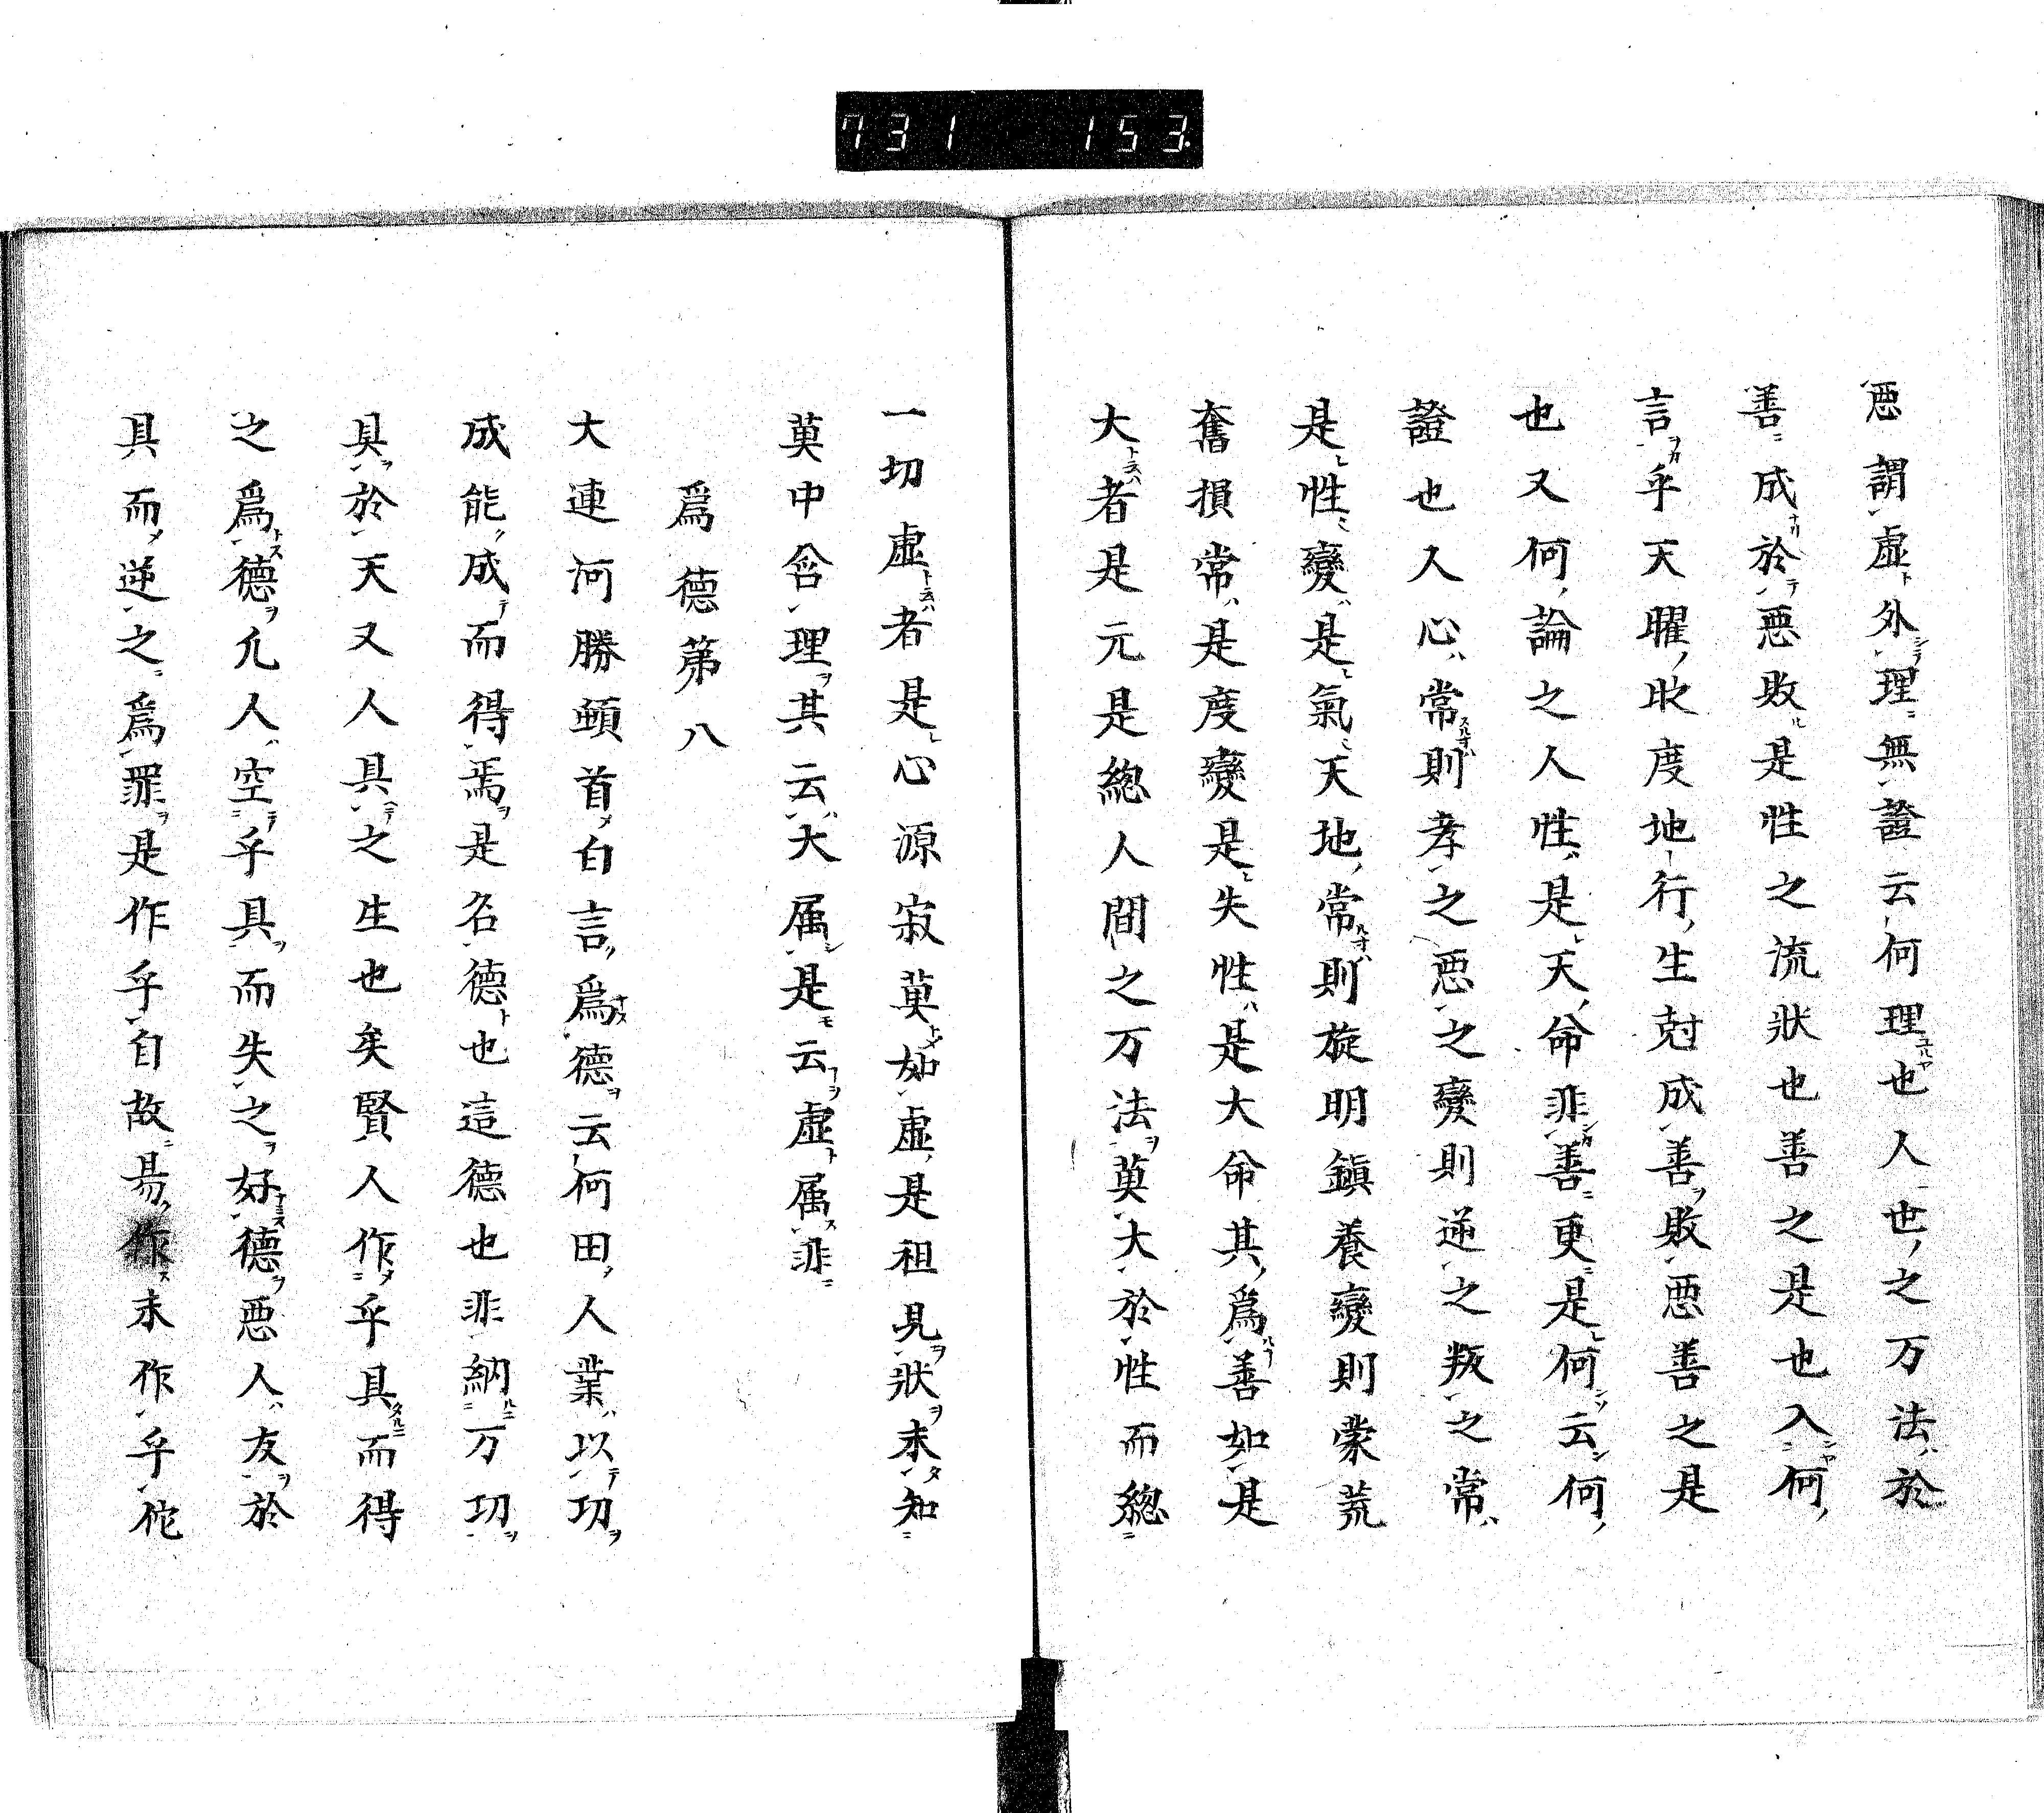 731 153
惡謂虛外理無證云何理也人世之万法於
善成於惡敗是性之流狀也善之是也入何
言乎天曜此度地行生尅成善敗惡善之是
也又何論之人性是天命非善更是何云何
證也人心常則孝之惡之變則逆之叛之常
是性變是氣天地常則旋明鎭養變則蒙荒
奮損常是度變是失性是大命其爲善如是
大者是元是總人間之万法莫大於性而總
一切虛者是心源寂莫如虛是祖見狀未知
莫中含理其云大属是云虛属非
爲德第八
大連河勝頓首白言爲德云何田人業以功
成能成而得焉是名德也這德也非納万功
具於天又人具之生也矣賢人作乎具而得
之爲德凢人空乎具而失之好德惡人友於
具而逆之爲罪是作乎自故易作未作乎佗